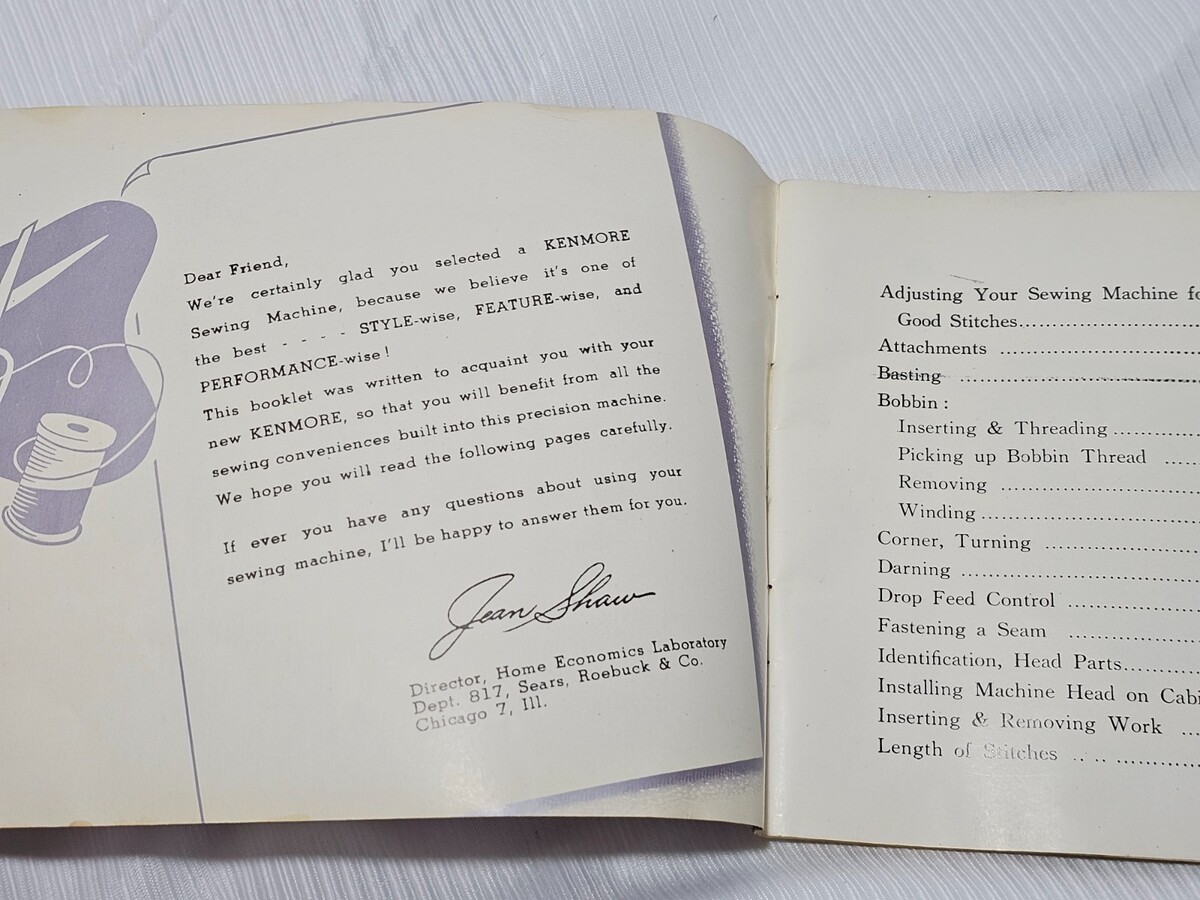 Dear Friend,
We're certainly glad you selected a KENMORE
Sewing Machine, because we believe it's one of
the best - - - - STYLE-wise, FEATURE-wise, and
PERFORMANCE-wise!
This booklet was written to acquaint you with your
new KENMORE, so that you will benefit from all the
sewing conveniences built into this precision machine.
We hope you will read the following pages carefully.
If ever you have any questions about using your
sewing machine, I'll be happy to answer them for you.
Jean Shaw
Director, Home Economics Laboratory
Dept. 817, Sears, Roebuck & Co.
Chicago 7, Ill.
Adjusting Your Sewing Machine fo
Good Stitches......................
Attachments ......................
Basting ......................
Bobbin :
Inserting & Threading............
Picking up Bobbin Thread .....
Removing ......................
Winding......................
Corner, Turning ..................
Darning ......................
Drop Feed Control ...............
Fastening a Seam ...............
Identification, Head Parts..........
Installing Machine Head on Cabi
Inserting & Removing Work ...
Length of Stitches .. .. ............